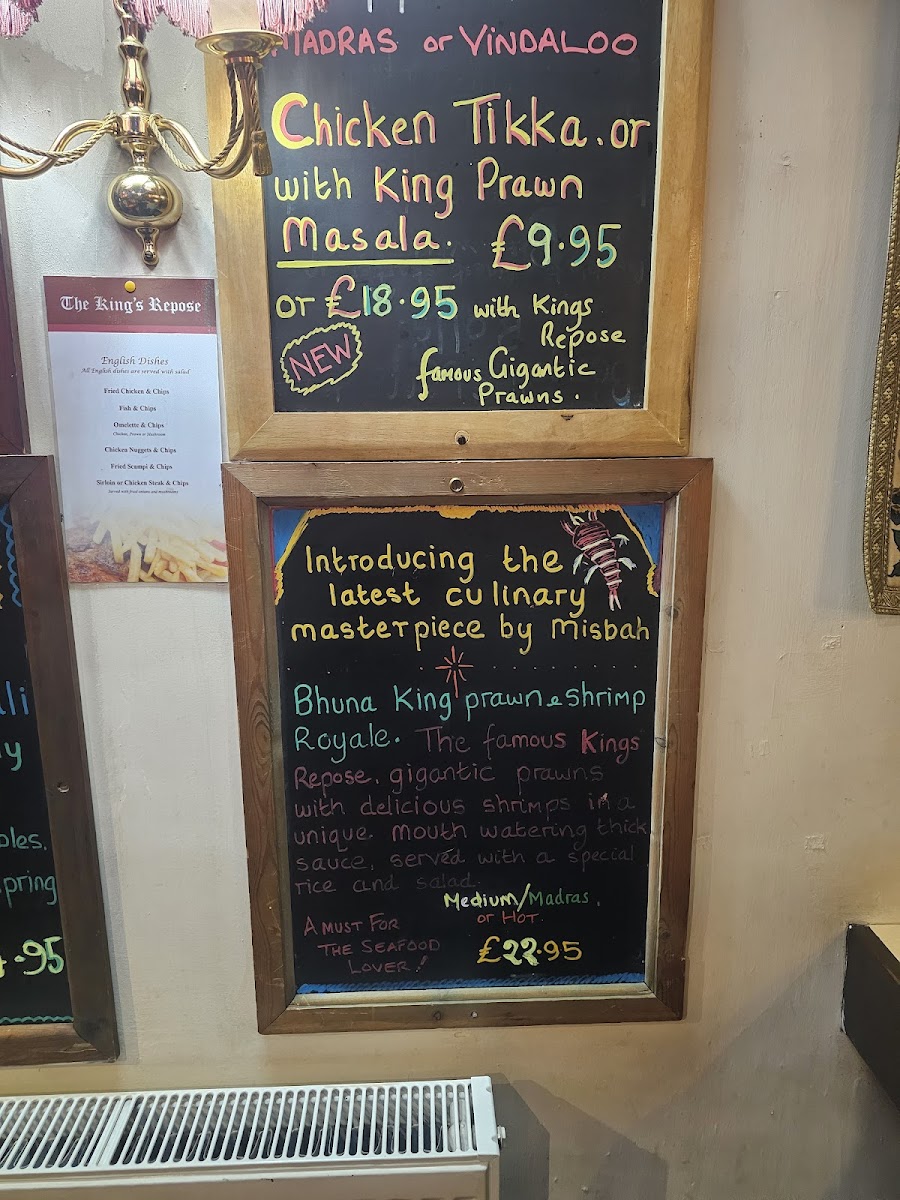 MADRAS or VINDALOO
Chicken Tikka. or
with King Prawn
Masala. £9.95
or £18.95 with Kings
Repose
NEW
famous Gigantic
Prawns.
The King's Repose
English Dishes
All English dishes are served with salad
Fried Chicken & Chips
Fish & Chips
Omelette & Chips
Chicken, Prawn or Mushroom
Chicken Nuggets & Chips
Fried Scampi & Chips
Sirloin or Chicken Steak & Chips
Served with fried onions and mushrooms
Introducing the
latest culinary
masterpiece by Misbah
Bhuna King prawn & shrimp
Royale. The famous Kings
Repose. gigantic prawns
with delicious shrimps in a
unique. mouth watering thick
sauce, served with a special
rice and salad.
Medium/Madras,
or HOT.
A MUST FOR
THE SEAFOOD
LOVER!
£22.95
li
y
oles.
pring
.95